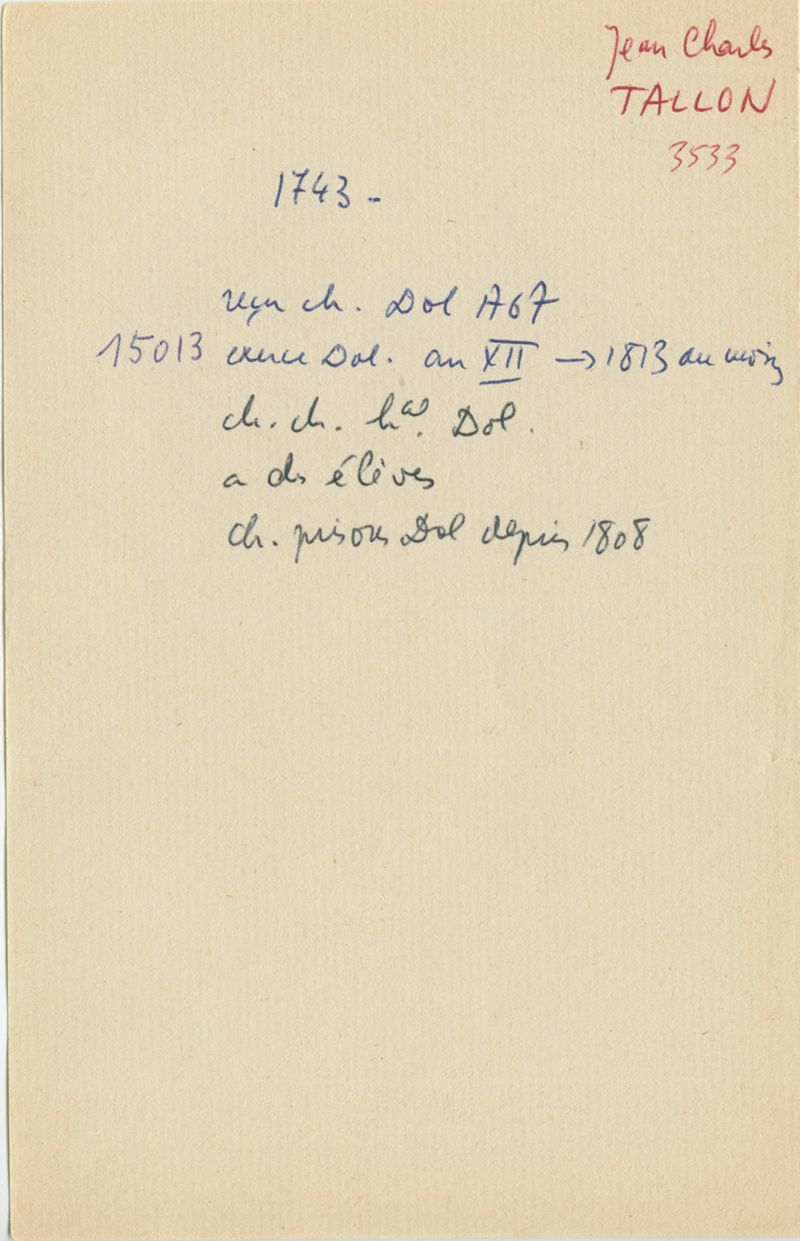 Jean Charles
TALLON
3533
1743 -
reçu ch. Dol 1767
15013 exerce Dol. an XII → 1813 au moins
ch. ch. h^al. Dol.
a des élèves
ch. prisons Dol depuis 1808